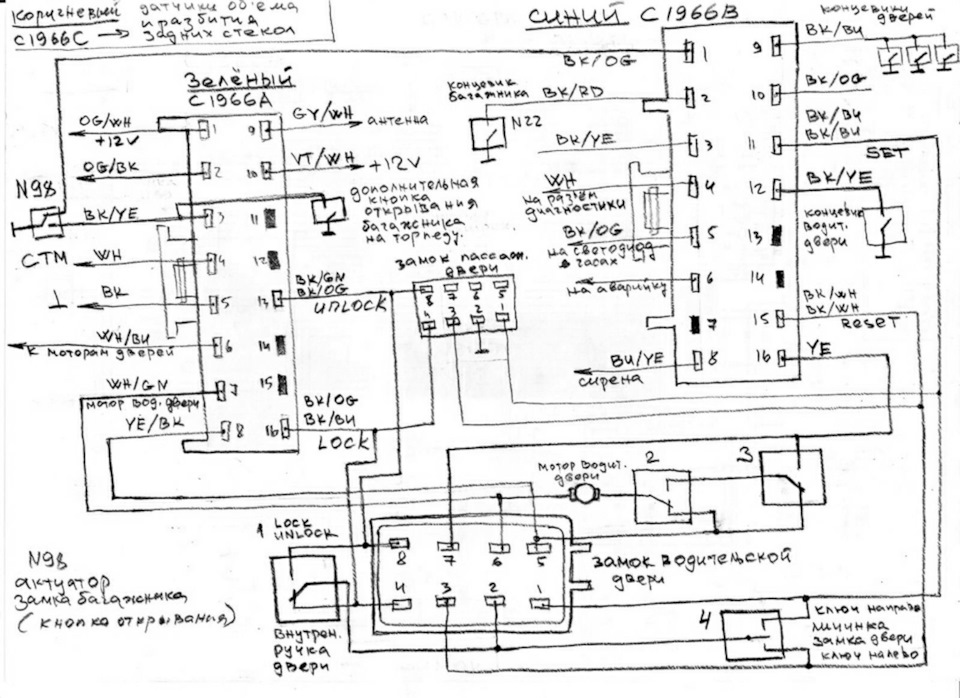 коричневый датчики объёма
и разбития
C1966C → задних стекол
СИНИЙ C1966B
концевики
дверей
Зелёный
C1966A
OG/WH
+12V
OG/BK
N98
BK/YE
СТМ WH
BK
WH/BU
к моторам дверей
WH/GN
мотор вод. двери
YE/BK
1
2
3
4
5
6
7
8
9
10
11
12
13
14
15
16
GY/WH антенна
VT/WH +12V
дополнительная
кнопка
открывания
багажника
на торпеду.
BK/GN
BK/OG
UNLOCK
BK/OG
BK/BU
LOCK
замок пассаж.
двери
8 7 6 5
4 3 2 1
BK/OG
концевик
багажника
BK/RD
N22
BK/YE
WH
на разъём
диагностики
BK/OG
на светодиод
в часах
на аварийку
BU/YE
сирена
1
2
3
4
5
6
7
8
9
10
11
12
13
14
15
16
BK/BU
BK/OG
BK/BU
BK/BU
SET
BK/YE
концевик
водит.
двери
BK/WH
BK/WH
RESET
YE
мотор водит.
двери
2
3
1 LOCK
UNLOCK
8 7 6 5
4 3 2 1
замок водительской
двери
Внутрен.
ручка
двери
4
ключ направо
личинка
замка двери
ключ налево
N98
актуатор
замка багажника
(кнопка открывания)